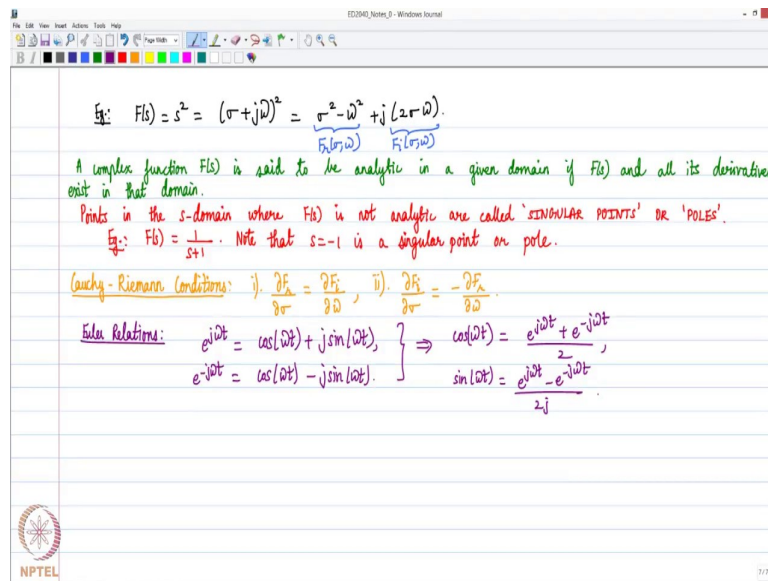 ED2040_Notes_0 - Windows Journal
File Edit View Insert Actions Tools Help
Page Width
B I
Eg:: F(s) = s² = (σ+jω)² = σ²-ω² + j(2σω).
F_r(σ,ω) F_i(σ,ω)
A complex function F(s) is said to be analytic in a given domain if F(s) and all its derivatives
exist in that domain.
Points in the s-domain where F(s) is not analytic are called 'SINGULAR POINTS' OR 'POLES'.
Eg:: F(s) = 1/(s+1). Note that s=-1 is a singular point or pole.
Cauchy-Riemann Conditions: i). ∂F_r/∂σ = ∂F_i/∂ω, ii). ∂F_i/∂σ = -∂F_r/∂ω.
Euler Relations: e^{jωt} = cos(ωt) + j sin(ωt), } ⇒ cos(ωt) = (e^{jωt} + e^{-jωt})/2,
e^{-jωt} = cos(ωt) - j sin(ωt). sin(ωt) = (e^{jωt} - e^{-jωt})/2j.
NPTEL
7/7